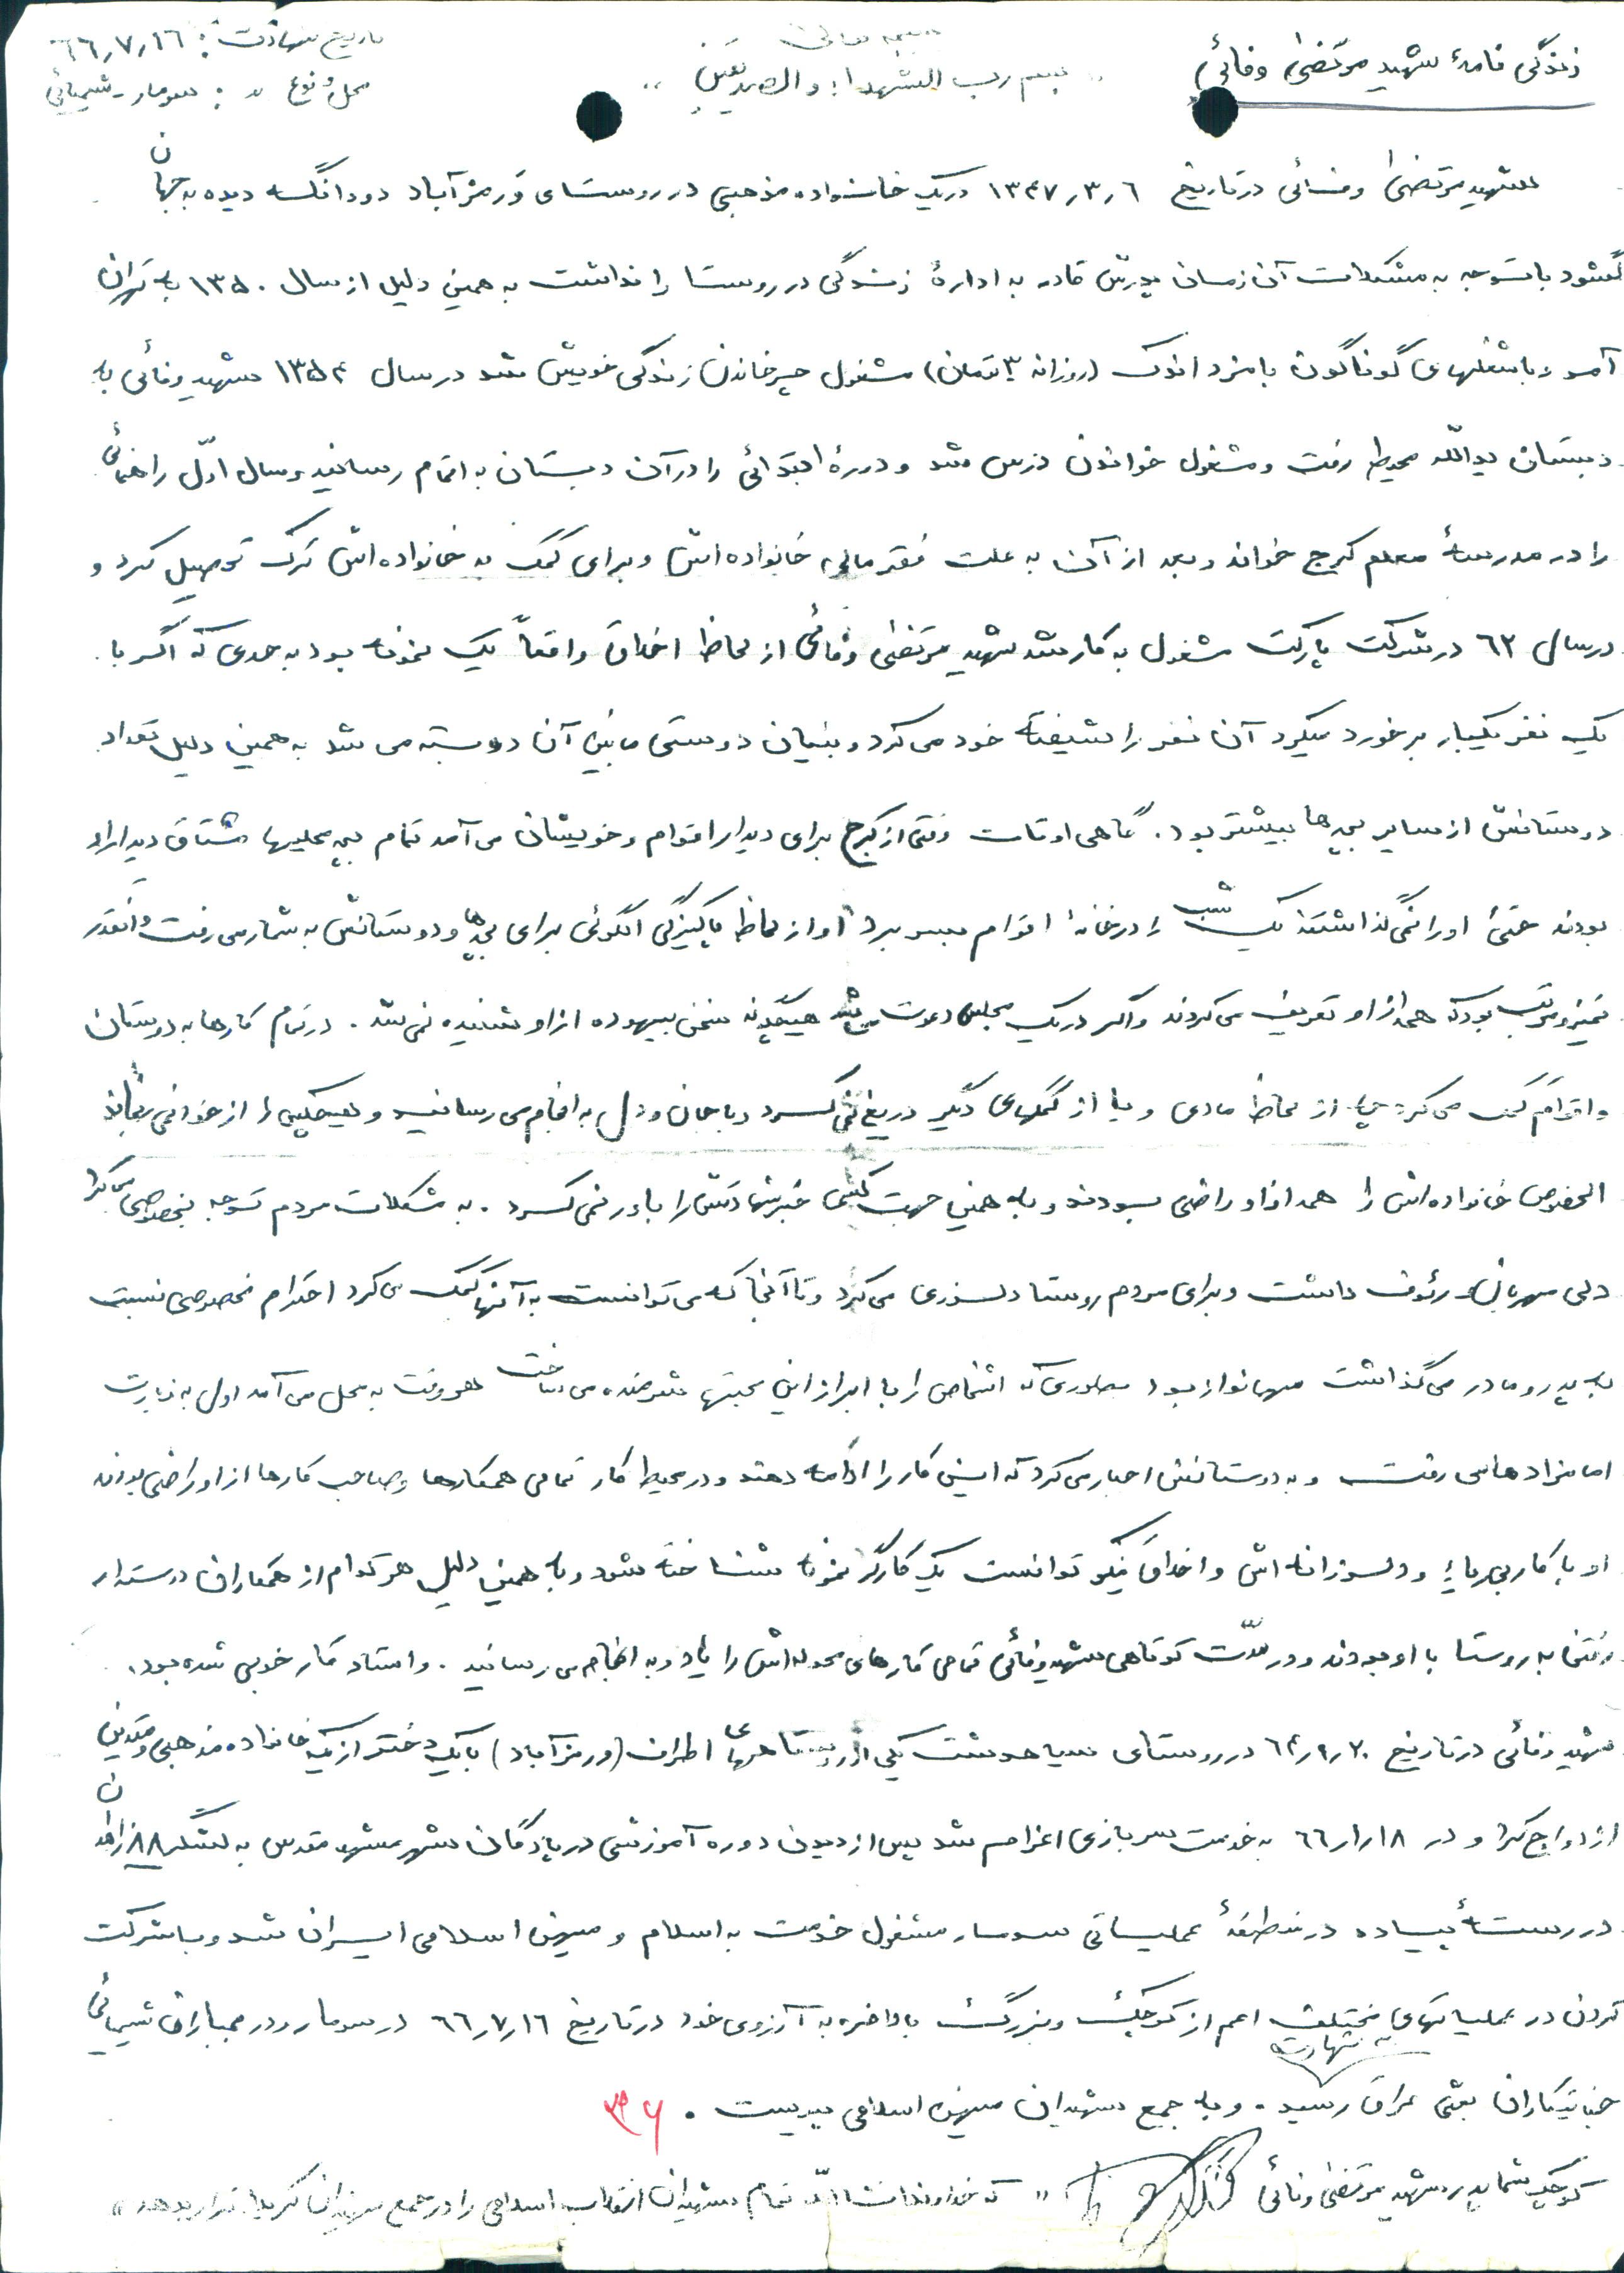 زندگی نامهٔ شهید مرتضیٰ وفائی
بسمه تعالی
« بسم رب الشهداء و الصدیقین »
تاریخ شهادت: ۶۶٫۷٫۱۶
محل و نوع ″ : سومار - شیمیائی
شهید مرتضیٰ وفائی در تاریخ ۱۳۴۷٫۳٫۶ در یک خانواده مذهبی در روستای ورمزآباد دودانگه دیده به جهان
گشود با توجه به مشکلات آن زمان پدرش قادر به ادارهٔ زندگی در روستا را نداشت به همین دلیل از سال ۱۳۵۰ به تهران
آمد و با شغلهای گوناگون با مزد اندک (روزانه ۳ تومان) مشغول چرخاندن زندگی خویش شد در سال ۱۳۵۴ شهید وفائی به
دبستان یدالله محیط رفت و مشغول خواندن درس شد و دورهٔ ابتدائی را در آن دبستان به اتمام رسانید و سال اوّل راهنمائی
را در مدرسهٔ معلم کرج خواند و بعد از آن به علت فقر مالی خانواده اش و برای کمک به خانواده اش ترک تحصیل کرد و
در سال ۶۲ در شرکت پارکت مشغول به کار شد شهید مرتضیٰ وفائی از لحاظ اخلاق واقعاً یک نمونه بود به حدی که اگر با
یک نفر یکبار برخورد میکرد آن نفر را شیفته خود می کرد و بنیان دوستی مابین آن دو بسته می شد به همین دلیل تعداد
دوستانش از سایر بچه ها بیشتر بود. گاهی اوقات وقتی از کرج برای دیدار اقوام و خویشان می آمد تمام بچه محلیها مشتاق دیدار او
بودند حتیٰ او را نمی گذاشتند یک شب را در خانهٔ اقوام بسر برد او از لحاظ پاکیزگی الگوئی برای بچه ها و دوستانش به شمار می رفت و آنقدر
تمیز و مرتب بود که همه از او تعریف می کردند و اگر در یک مجلس دعوت می شد هیچگونه سخن بیهوده از او شنیده نمی شد. در تمام کارها به دوستان
و اقوام کمک می کرد چه از لحاظ مادی و یا از کمکهای دیگر دریغ نمی کرد و با جان و دل به انجام می رسانید و هیچکس را از خود نمی رنجاند
الخصوص خانواده اش را همه از او راضی بودند و به همین جهت کسی خبر شهادتش را باور نمی کرد. به مشکلات مردم توجه بخصوصی می کرد
دلی مهربان و رئوف داشت و برای مردم روستا دلسوزی می کرد و تا آنجا که می توانست به آنها کمک می کرد احترام مخصوصی نسبت
به پدر و مادر می گذاشت مهمانواز بود بطوری که اشخاص را با ابراز این محبتها شرمنده می ساخت هر وقت به محل می آمد اول به زیارت
امامزاده ها می رفت و به دوستانش اجبار می کرد که این کار را ادامه دهند و در محیط کار تمامی همکارها و صاحب کارها از او راضی بودند
او با کار بی ریا و دلسوزانه اش و اخلاق نیکو توانست یک کارگر نمونه شناخته شود و به همین دلیل هر کدام از همکاران دوستدار
رفتن به روستا با او بودند و در مدّت کوتاهی شهید وفائی تمامی کارهای محوله اش را یاد و به انجام می رسانید. و استاد کار خوبی شده بود.
شهید وفائی در تاریخ ۶۴٫۹٫۲۰ در روستای سیاهدشت یکی از روستاهای اطراف (ورمزآباد) با یک دختر از یک خانواده مذهبی و متدین
ازدواج کرد و در ۶۶٫۱٫۱۸ به خدمت سربازی اعزام شد پس از دیدن دوره آموزشی در پادگان شهر مشهد مقدس به لشگر ۸۸ زاهدان
در رستهٔ پیاده در منطقهٔ عملیاتی سومار مشغول خدمت به اسلام و میهن اسلامی ایران شد و با شرکت
کردن در عملیاتهای مختلف اعم از کوچک و بزرگ بالاخره به آرزوی خود در تاریخ ۶۶٫۷٫۱۶ در سومار و در بمباران شیمیائی
جنایتکاران بعثی عراق به شهادت رسید. و به جمع شهیدان میهن اسلامی پیوست.
کوچک شما پدر شهید مرتضیٰ وفائی
« که خداوند انشاءالله تمام شهیدان انقلاب اسلامی را در جمع شهیدان کربلا قرار بدهد »